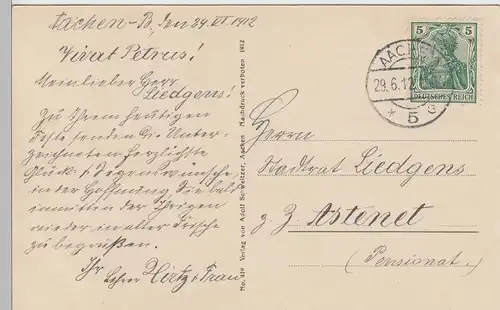 Aachen-B., den 29.VI 1912
Vivat Petrus!
Mein lieber Herr
Liedgens!
Zu Ihrem heutigen
Feste senden die Unter-
zeichneten herzlichste
Glück- & Segenswünsche,
in der Hoffnung, Sie bald
inmitten der Ihrigen
wieder in alter Frische
zu begrüßen.
Ihr
Lehrer Hirtz & Frau
No. 419 Verlag von Adolf Schweitzer, Aachen Nachdruck verboten 1912
5 5
DEUTSCHES REICH
AACHEN
29.6.12
* 5 c
Herrn
Stadtrat Liedgens
z. Z. Astenet
(Pensionat.)